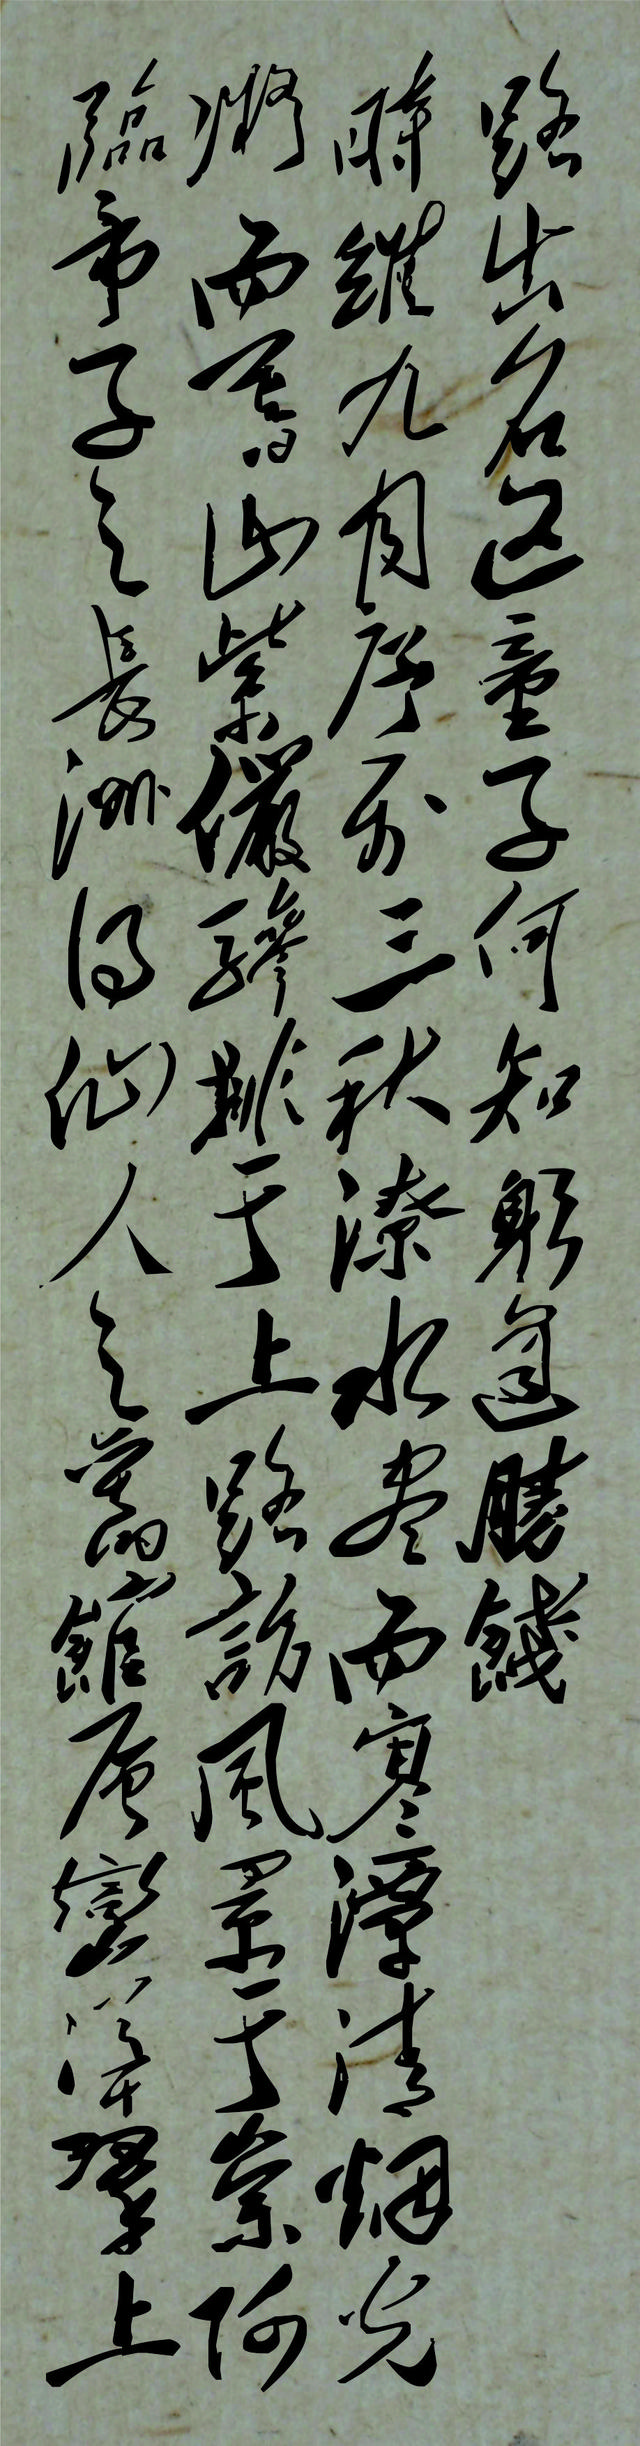 路出名區童子何知躬逢勝餞
時維九月序屬三秋潦水盡而寒潭清烟光
凝而暮山紫儼驂騑于上路訪風景于崇阿
臨帝子之長洲得仙人之舊館層巒聳翠上